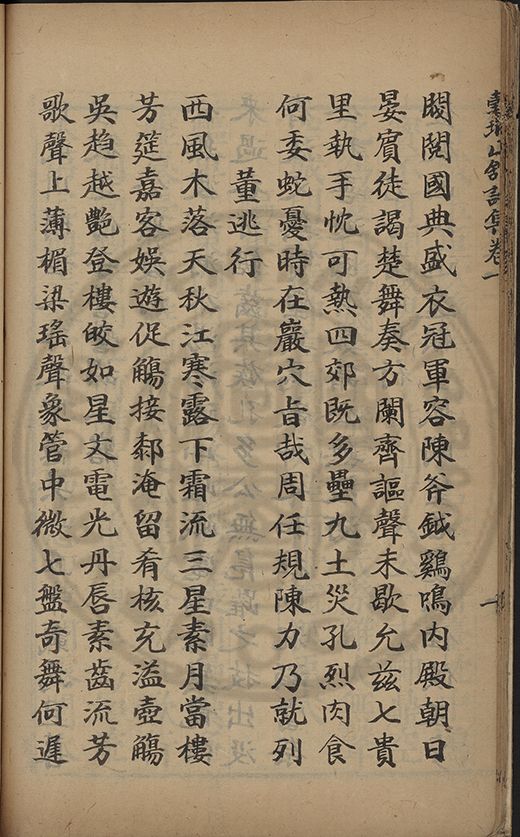 閥閱國典盛衣冠軍容陳斧鉞鷄鳴內殿朝日
晏賓徒謁楚舞奏方闌齊謳聲未歇允兹七貴
里執手忱可熱四郊既多壘九土災孔烈肉食
何委蛇憂時在巖穴旨哉周任規陳力乃就列
董逃行
西風木落天秋江寒露下霜流三星素月當樓
芳筵嘉客娛遊促觴接郄淹留肴核充溢壺觴
吳趋越艷登樓皎如星太電光丹唇素齒流芳
歌聲上薄楣梁瑤聲象管中微七盤奇舞何遲
山舒詩集卷一
一